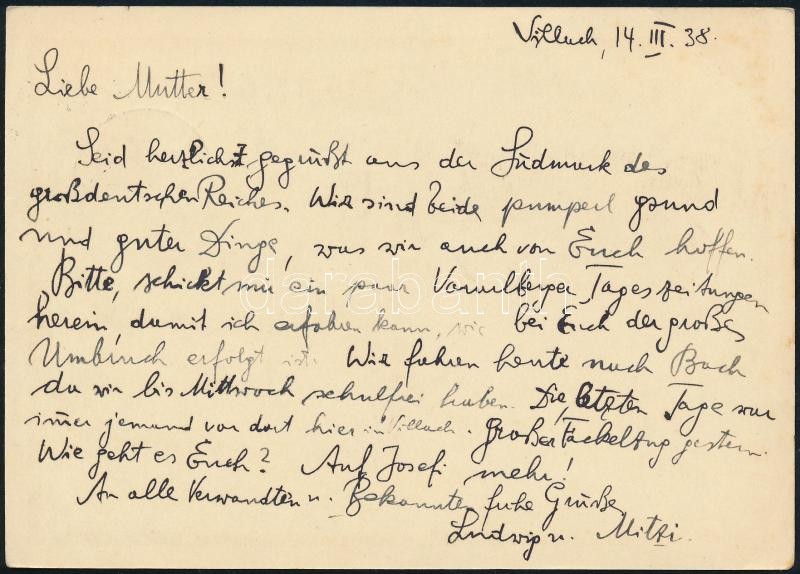 Villach, 14. III. 38.
Liebe Mutter!
Seid herzlichst gegrüßt aus der Südmark des
großdeutschen Reiches. Wir sind beide pumperl gsund
und guter Dinge, was wir auch von Euch hoffen.
Bitte, schickt mir ein paar Vorarlberger Tageszeitungen
herein, damit ich erfahren kann, wie bei Euch der große
Umbruch erfolgt ist. Wir fahren heute nach Bach
da wir bis Mittwoch schulfrei haben. Die letzten Tage war
immer jemand von dort hier in Villach. Großer Fackelzug gestern.
Wie geht es Euch? Auf Josefi mehr!
An alle Verwandten u. Bekannten frohe Grüße
Ludwig u. Mitzi.
darabanth